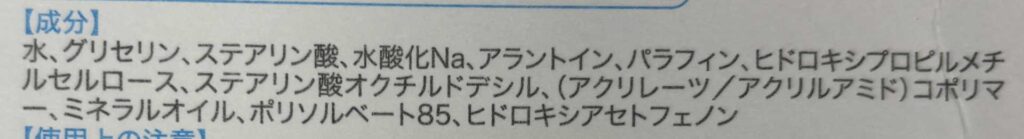 【成分】
水、グリセリン、ステアリン酸、水酸化Na、アラントイン、パラフィン、ヒドロキシプロピルメチ
ルセルロース、ステアリン酸オクチルドデシル、(アクリレーツ/アクリルアミド)コポリマ
ー、ミネラルオイル、ポリソルベート85、ヒドロキシアセトフェノン
【使用上の注意】